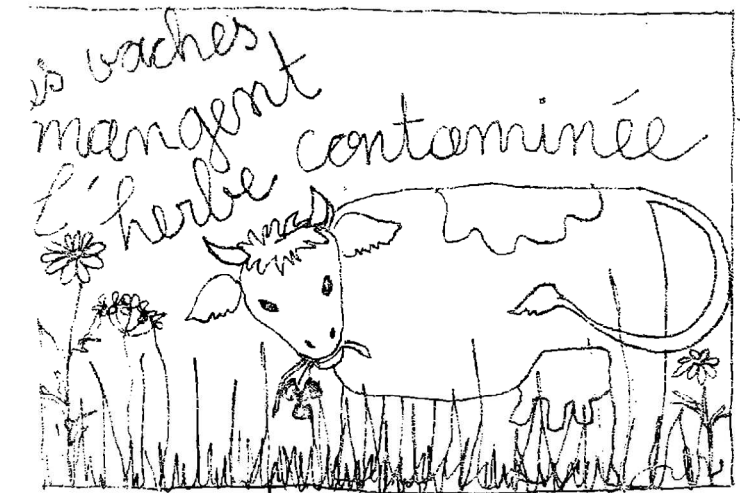 vaches
mangent
l'herbe contaminée